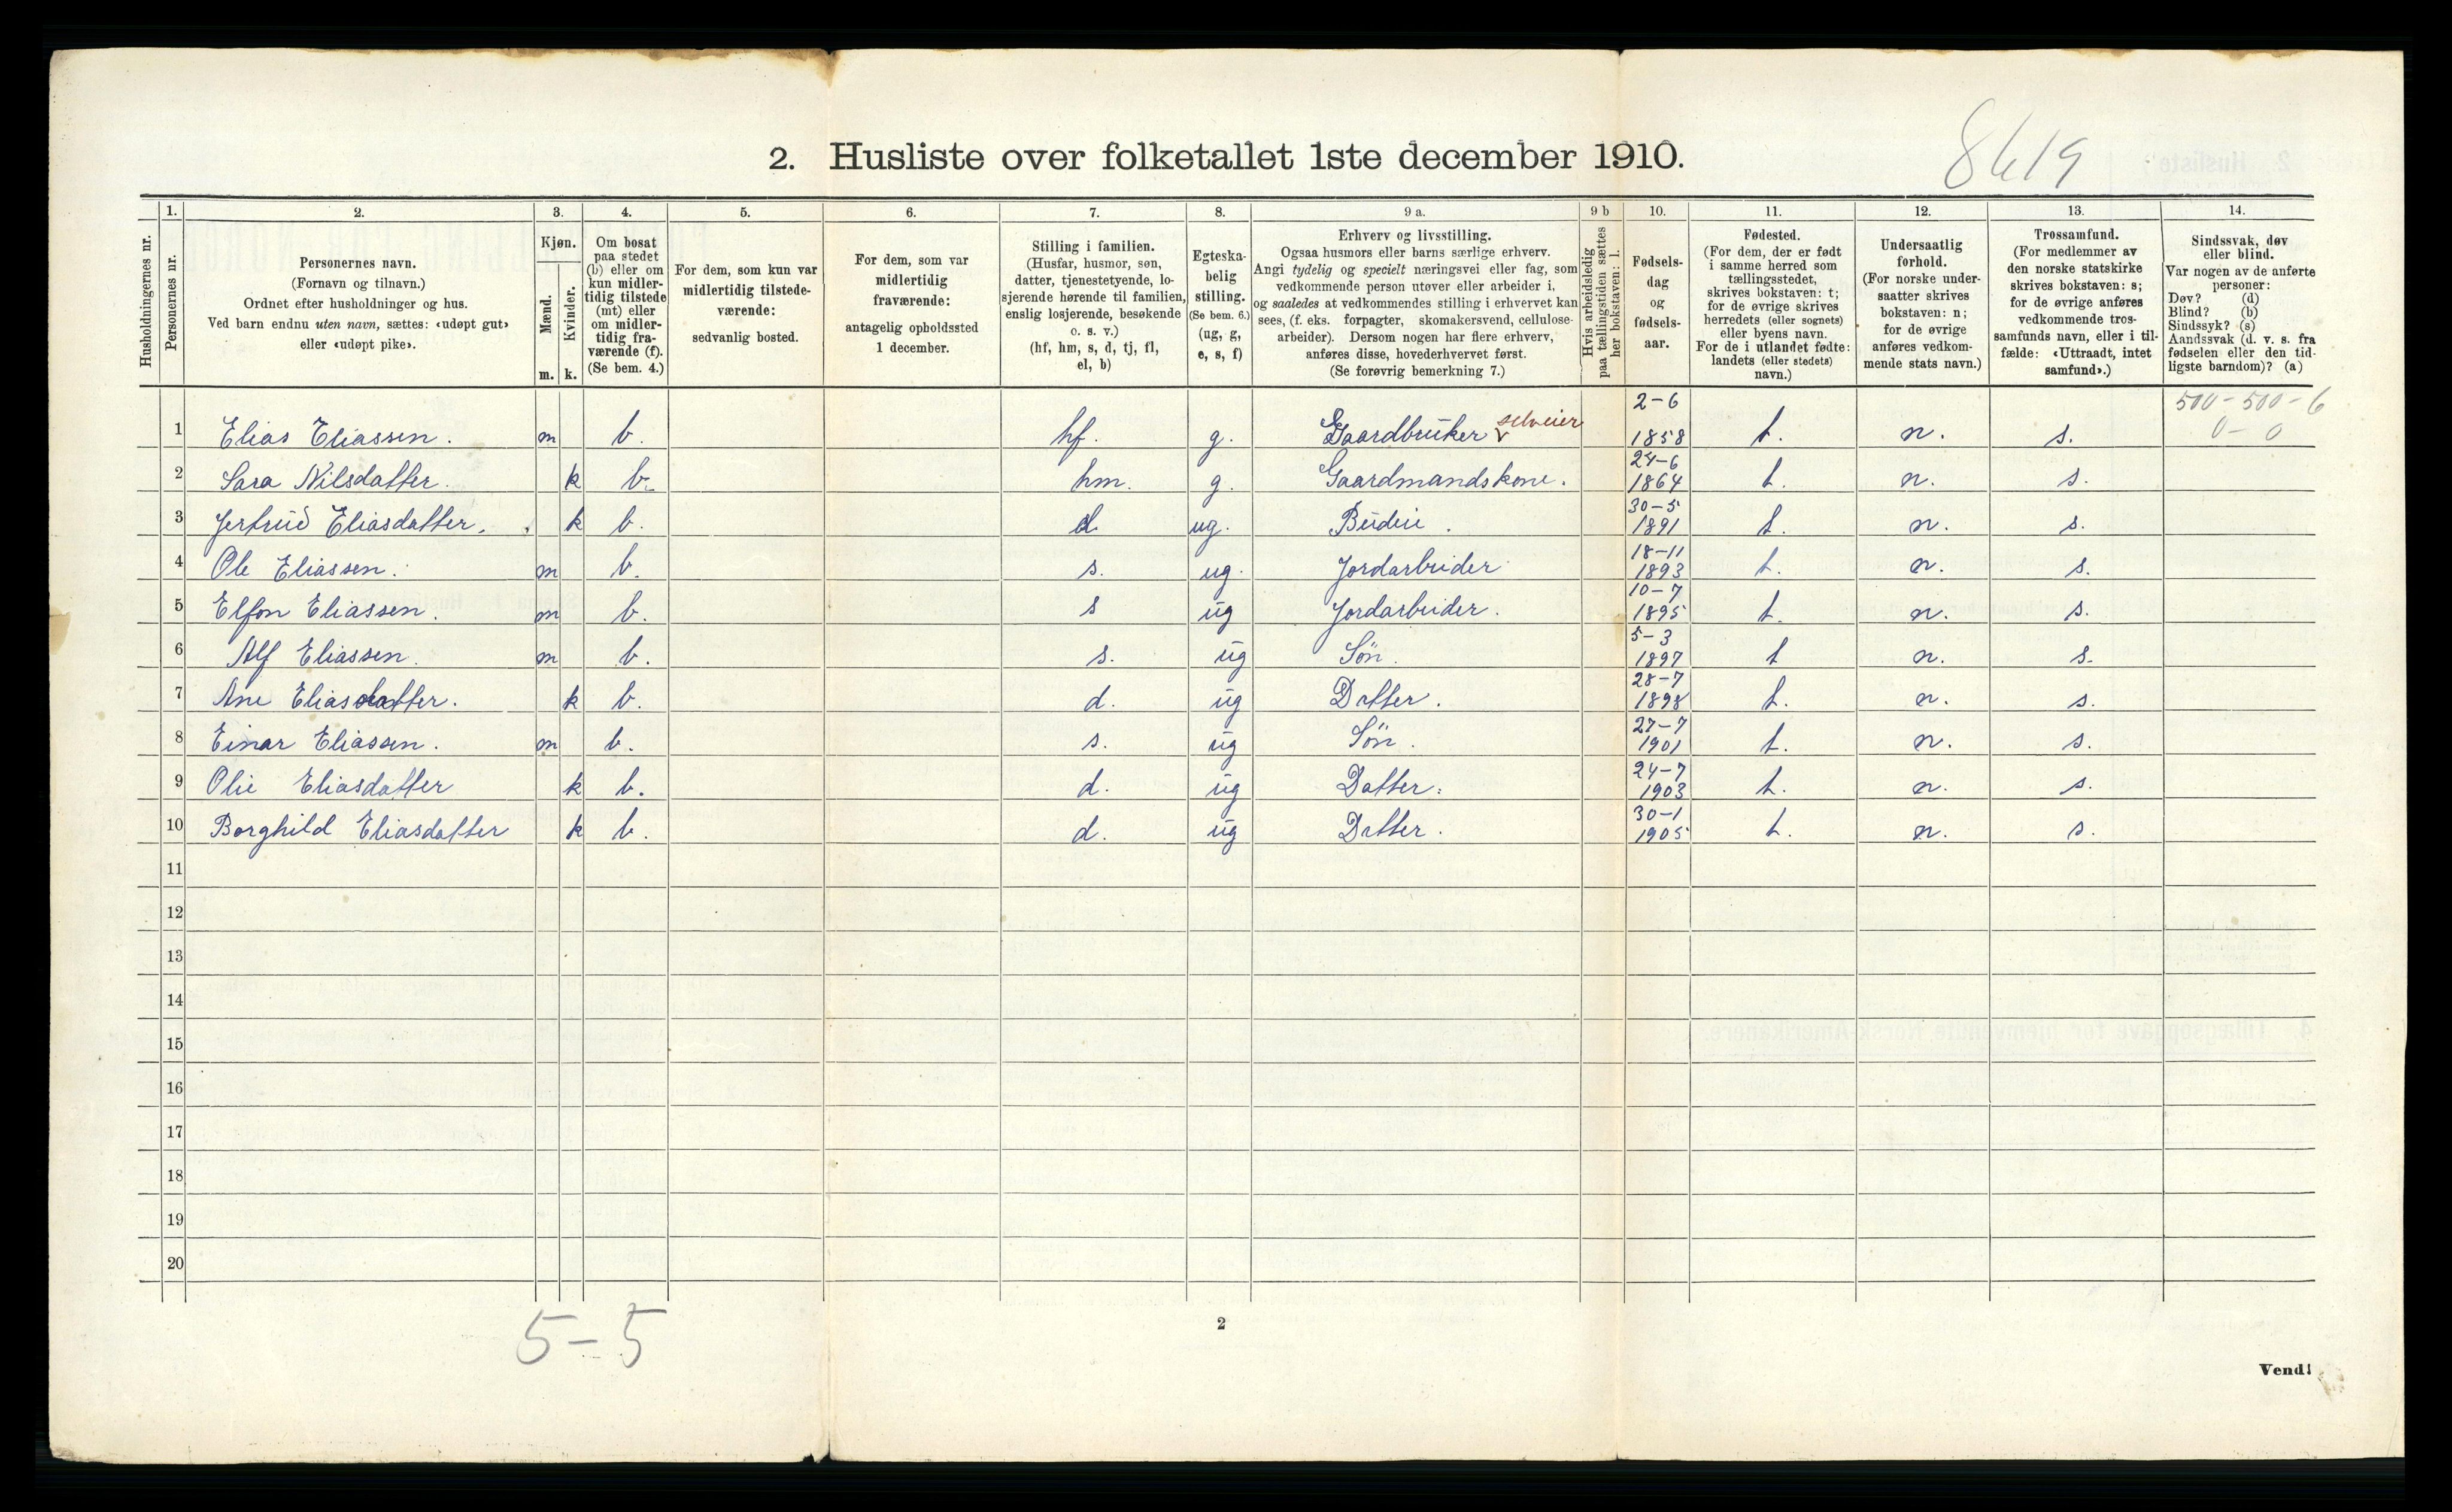 8619
2. Husliste over folketallet 1ste december 1910.
Husholdningernes nr.
1. Personernes nr.
2. Personernes navn.
(Fornavn og tilnavn.)
Ordnet efter husholdninger og hus.
Ved barn endnu uten navn, sættes: «udøpt gut»
eller «udøpt pike».
3. Kjøn.
Mænd. m.
Kvinder. k.
4. Om bosat
paa stedet
(b) eller om
kun midler-
tidig tilstede
(mt) eller
om midler-
tidig fra-
værende (f).
(Se bem. 4.)
5. For dem, som kun var
midlertidig tilstede-
værende:
sedvanlig bosted.
6. For dem, som var
midlertidig
fraværende:
antagelig opholdssted
1 december.
7. Stilling i familien.
(Husfar, husmor, søn,
datter, tjenestetyende, lo-
sjerende hørende til familien,
enslig losjerende, besøkende
o. s. v.)
(hf, hm, s, d, tj, fl,
el, b)
8. Egteska-
belig
stilling.
(Se bem. 6.)
(ug, g,
e, s, f)
9 a. Erhverv og livsstilling.
Ogsaa husmors eller barns særlige erhverv.
Angi tydelig og specielt næringsvei eller fag, som
vedkommende person utøver eller arbeider i,
og saaledes at vedkommendes stilling i erhvervet kan
sees, (f. eks. forpagter, skomakersvend, cellulose-
arbeider). Dersom nogen har flere erhverv,
anføres disse, hovederhvervet først.
(Se forøvrig bemerkning 7.)
9 b Hvis arbeidsledig
paa tællingstiden sættes
her bokstaven: l.
10. Fødsels-
dag
og
fødsels-
aar.
11. Fødested.
(For dem, der er født
i samme herred som
tællingsstedet,
skrives bokstaven: t;
for de øvrige skrives
herredets (eller sognets)
eller byens navn.
For de i utlandet fødte:
landets (eller stedets)
navn.)
12. Undersaatlig
forhold.
(For norske under-
saatter skrives
bokstaven: n;
for de øvrige
anføres vedkom-
mende stats navn.)
13. Trossamfund.
(For medlemmer av
den norske statskirke
skrives bokstaven: s;
for de øvrige anføres
vedkommende tros-
samfunds navn, eller i til-
fælde: «Uttraadt, intet
samfund».)
14. Sindssvak, døv
eller blind.
Var nogen av de anførte
personer:
Døv? (d)
Blind? (b)
Sindssyk? (s)
Aandssvak (d. v. s. fra
fødselen eller den tid-
ligste barndom)? (a)
500-500-6
0-0
1 Elias Eliassen. m b. hf. g. Gaardbruker selveier 2-6 1858 t. n. s.
2 Sara Nilsdatter. k b. hm. g. Gaardmandskone. 24-6 1864 t. n. s.
3 Jertrud Eliasdatter. k b. d ug. Budeie. 30-5 1891 t. n. s.
4 Ole Eliassen. m b. s. ug. Jordarbeider 18-11 1893 t. n. s.
5 Elfon Eliassen. m b. s ug Jordarbeider. 10-7 1895 t. n. s.
6 Alf Eliassen. m b. s. ug Søn. 5-3 1897 t n. s.
7 Ane Eliasdatter. k b. d. ug Datter. 28-7 1898 t. n. s.
8 Einar Eliassen. m b. s. ug Søn. 27-7 1901 t. n. s.
9 Olie Eliasdatter k b. d. ug Datter. 24-7 1903 t. n. s.
10 Borghild Eliasdatter k b. d. ug Datter. 30-1 1905 t. n. s.
11
12
13
14
15
16
17
18
19
20
5-5
2
Vend!